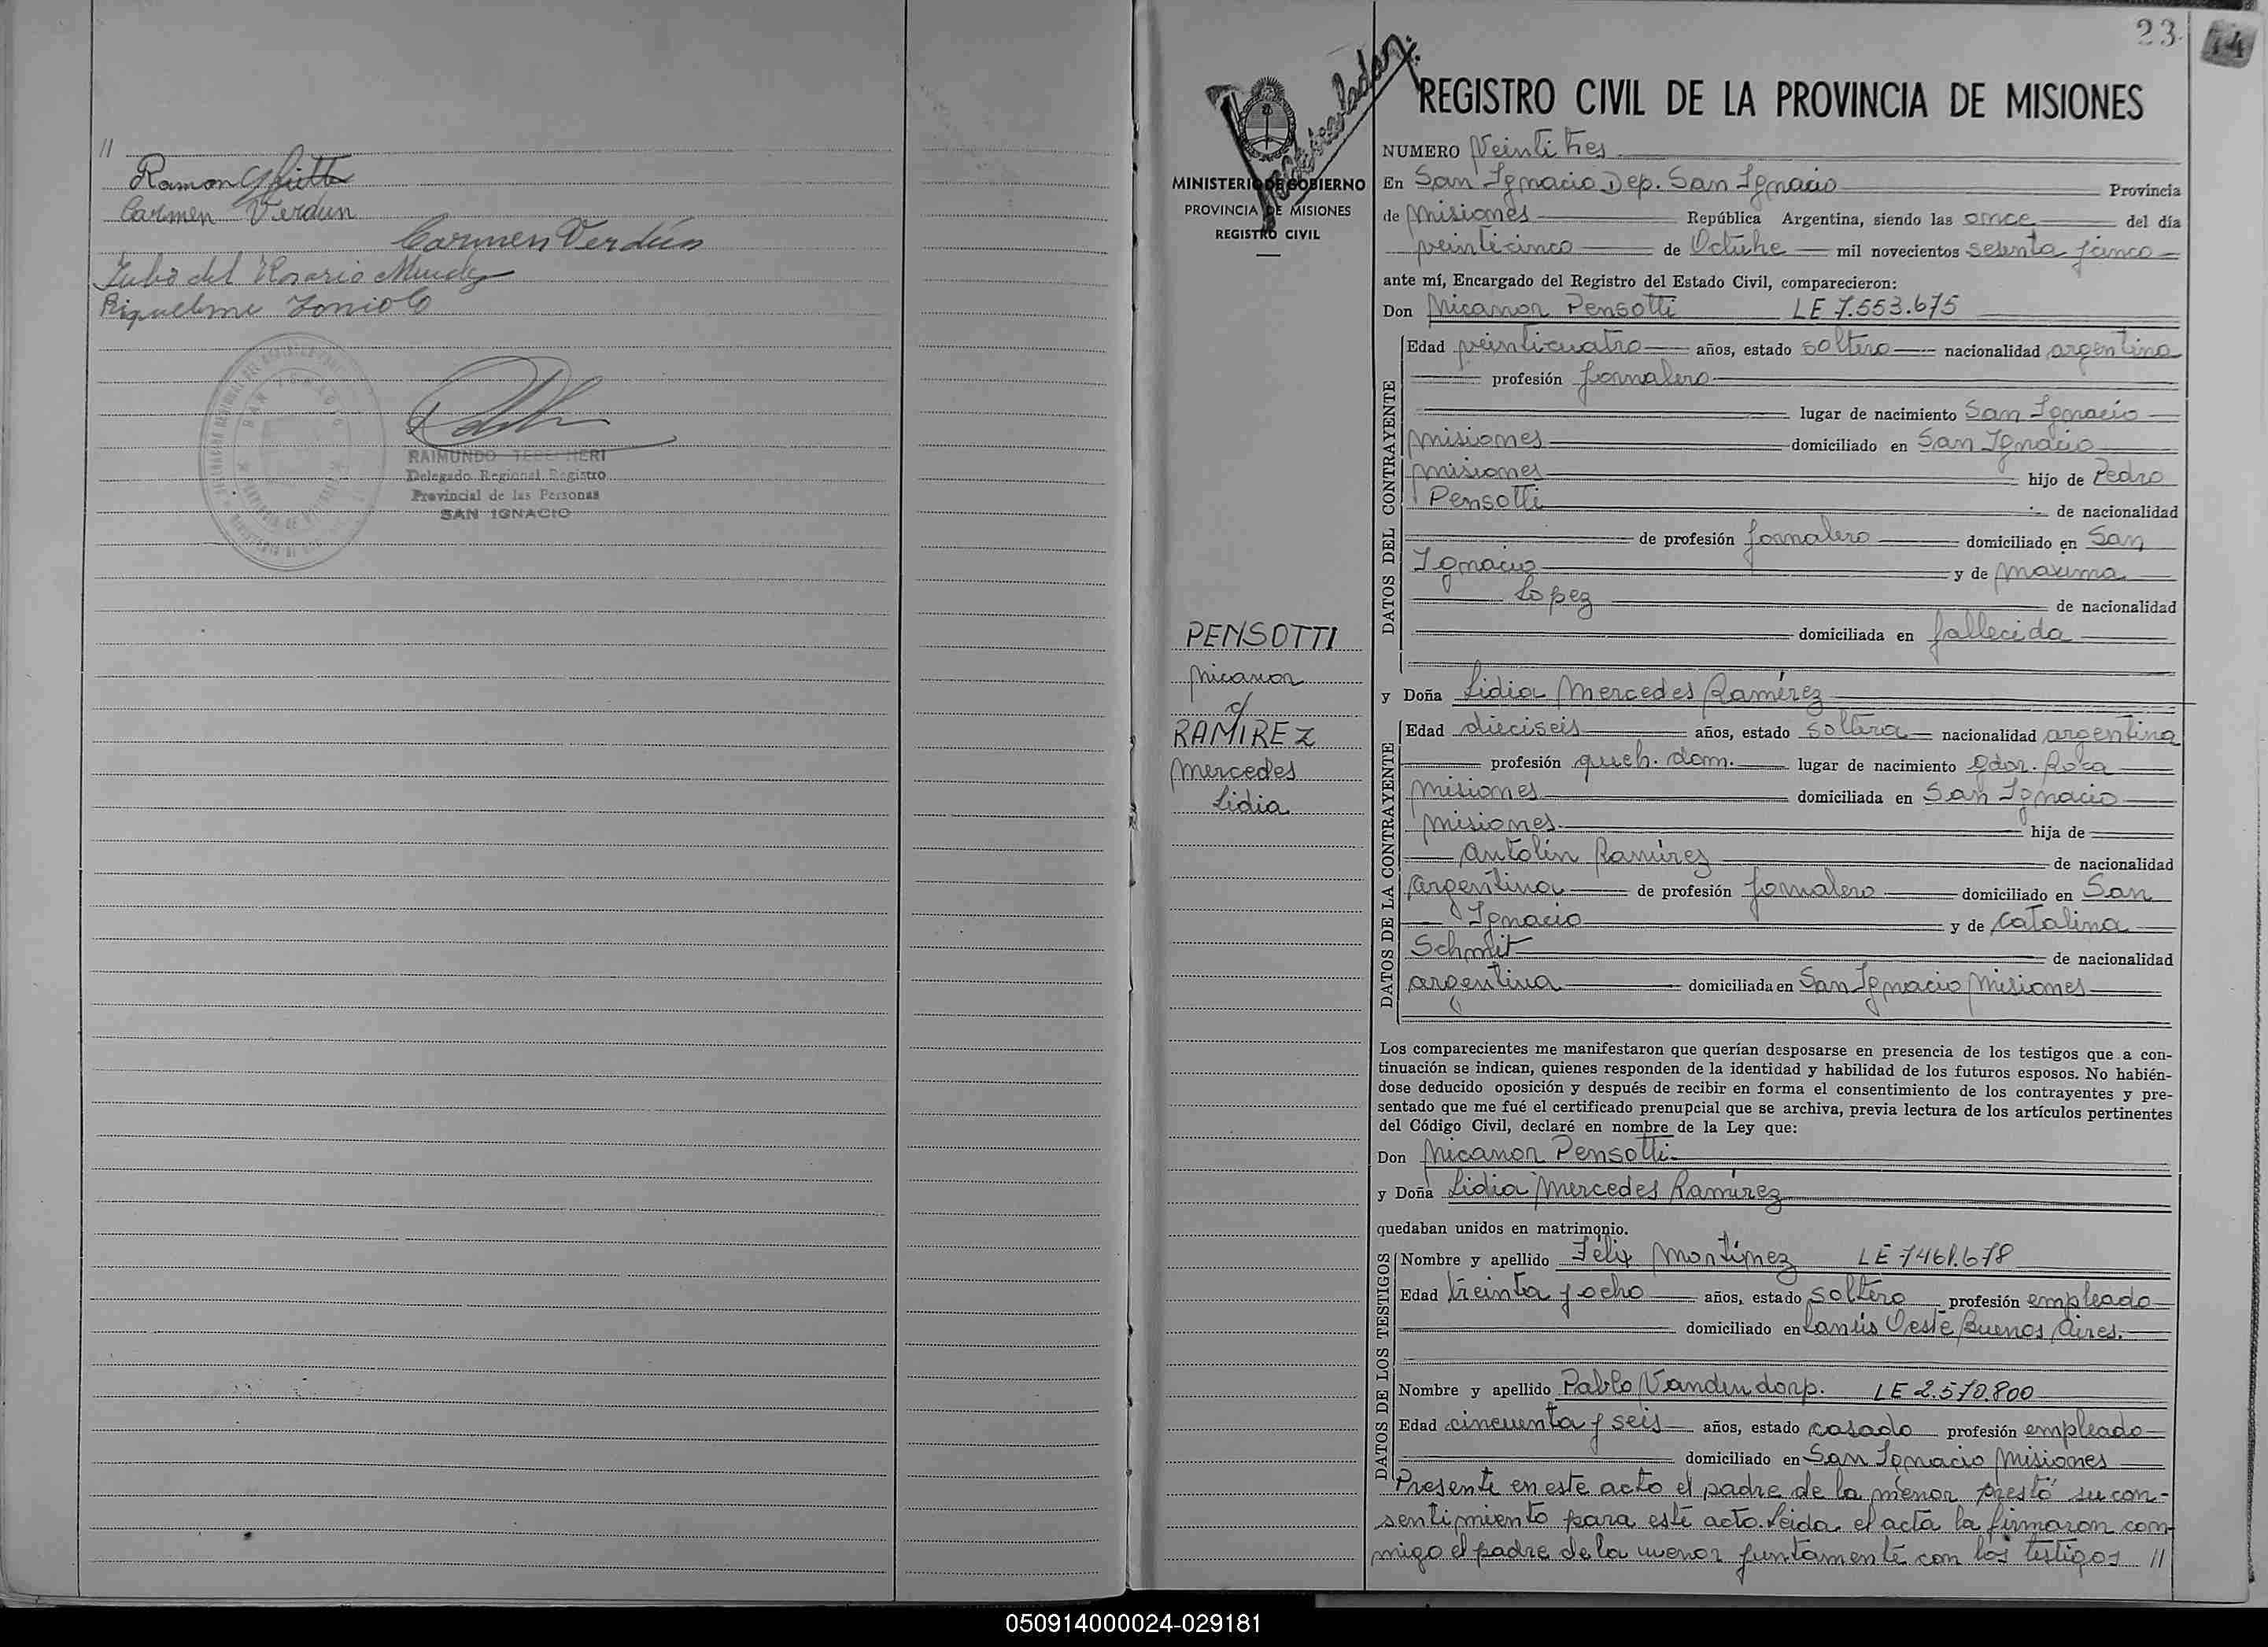 //
Ramon
Carmen Verdun
Carmen Verdún
Julio del Rosario Mendez
Riquelme
SAN IGNACIO
RAIMUNDO
Delegado Regional Registro
Provincial de las Personas
SAN IGNACIO
23
44
MINISTERIO DE GOBIERNO
PROVINCIA DE MISIONES
REGISTRO CIVIL
PENSOTTI
Nicanor
c/
RAMIREZ
Mercedes
Lidia
REGISTRO CIVIL DE LA PROVINCIA DE MISIONES
NUMERO Veintitres
En San Ignacio Dep. San Ignacio Provincia
de Misiones República Argentina, siendo las once del día
veinticinco de Octubre mil novecientos sesenta y cinco
ante mí, Encargado del Registro del Estado Civil, comparecieron:
Don Nicanor Pensotti LE 7.553.675
DATOS DEL CONTRAYENTE
Edad veinticuatro años, estado soltero nacionalidad argentina
profesión jornalero
lugar de nacimiento San Ignacio
Misiones domiciliado en San Ignacio
Misiones hijo de Pedro
Pensotti de nacionalidad
de profesión jornalero domiciliado en San
Ignacio y de Maxima
Lopez de nacionalidad
domiciliada en fallecida
y Doña Lidia Mercedes Ramírez
DATOS DE LA CONTRAYENTE
Edad dieciseis años, estado soltera nacionalidad argentina
profesión queh. dom. lugar de nacimiento Gdor. Roca
Misiones domiciliada en San Ignacio
Misiones hija de
Antolín Ramírez de nacionalidad
argentina de profesión jornalero domiciliado en San
Ignacio y de Catalina
Schmit de nacionalidad
argentina domiciliada en San Ignacio Misiones
Los comparecientes me manifestaron que querían desposarse en presencia de los testigos que a con-
tinuación se indican, quienes responden de la identidad y habilidad de los futuros esposos. No habién-
dose deducido oposición y después de recibir en forma el consentimiento de los contrayentes y pre-
sentado que me fué el certificado prenupcial que se archiva, previa lectura de los artículos pertinentes
del Código Civil, declaré en nombre de la Ley que:
Don Nicanor Pensotti.
y Doña Lidia Mercedes Ramírez
quedaban unidos en matrimonio.
DATOS DE LOS TESTIGOS
Nombre y apellido Félix Martínez LE 7461.678
Edad treinta y ocho años, estado soltero profesión empleado
domiciliado en Lanús Oeste Buenos Aires.
Nombre y apellido Pablo Vandendorp. LE 2.570.800
Edad cincuenta y seis años, estado casado profesión empleado
domiciliado en San Ignacio Misiones
Presente en este acto el padre de la menor prestó su con-
sentimiento para este acto. Leida el acta la firmaron con-
migo el padre de la menor juntamente con los testigos //
050914000024-029181